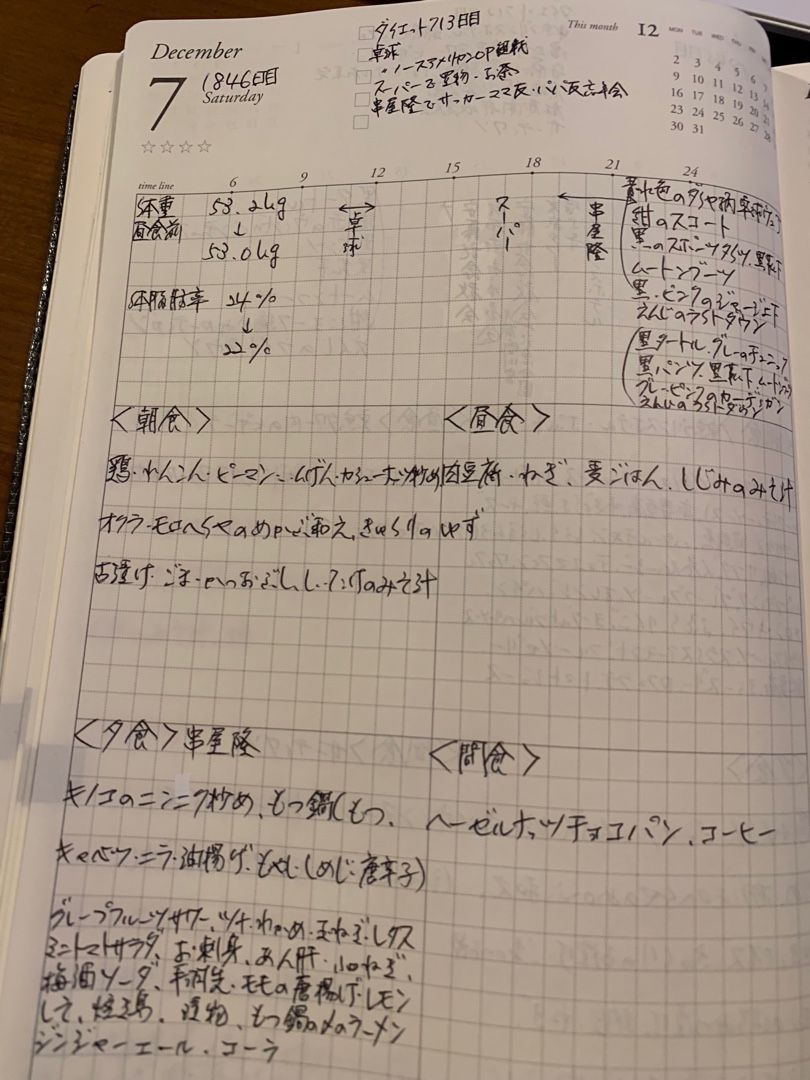 ダイエット713日目
卓球
スーパーで買物・お茶
串屋隆でサッカーママ友・パパ友忘年会
This month 12
MON TUE WED THU FRI
2 3 4 5 6 7
9 10 11 12 13 14
16 17 18 19 20 21
23 24 25 26 27 28
30 31
December
7
1846日目
Saturday
☆☆☆☆
time line 6 9 12 15 18 21 24
体重 53.2kg
昼食前 ↓
53.0kg
体脂肪率 24%
↓
22%
卓球
スーパー
串屋隆
紺のスコート
黒のスポーツタイツ、黒靴下
ムートンブーツ
黒・ピンクのジャージ上下
えんじのウルトダウン
黒タートル・グレーのチュニック
黒パンツ、黒靴下、ムートンブーツ
グレーピンクのカーディガン
<朝食>
鶏・れんこん・ピーマン・カシューナッツ炒め
オクラ・モロヘイヤのめかぶ和え、きゅうりのゆず
ごま・かつおぶし、のみそ汁
<昼食>
肉豆腐・ねぎ、麦ごはん、しじみのみそ汁
<夕食>串屋隆
キノコのニンニク炒め、もつ鍋(もつ、
キャベツ・ニラ・油揚げ・もやし・しめじ・唐辛子)
グレープフルーツサワー、ツナ・わかめ・玉ねぎ・レタス
ミニトマトサラダ、お刺身、あん肝・小ねぎ、
梅酒ソーダ、手羽先・モモの唐揚げ・レモン
して、焼鳥、漬物、もつ鍋の〆のラーメン
ジンジャーエール、コーラ
<間食>
ヘーゼルナッツチョコパン、コーヒー